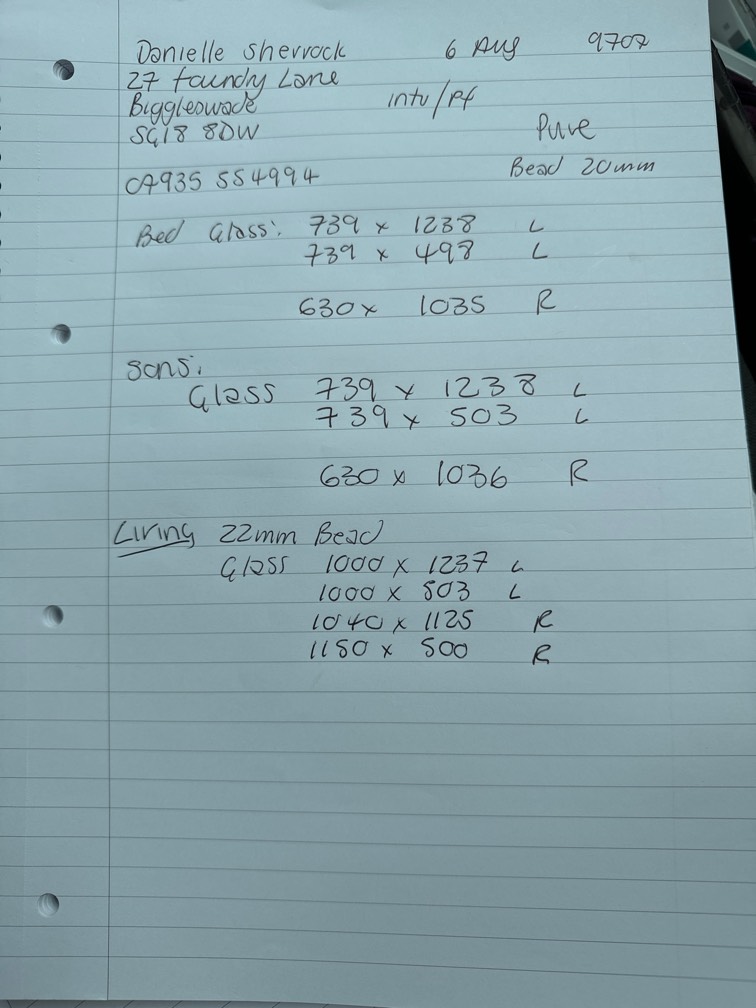 Danielle Sherrock 6 Aug 9707
27 Foundry Lane
Biggleswade intu/Pf
SG18 8DW Pure
Bead 20mm
07935 554994
Bed Glass: 739 x 1238 L
739 x 498 L
630 x 1035 R
Sons:
Glass 739 x 1238 L
739 x 503 L
630 x 1036 R
Living 22mm Bead
Glass 1000 x 1237 L
1000 x 503 L
1040 x 1125 R
1150 x 500 R